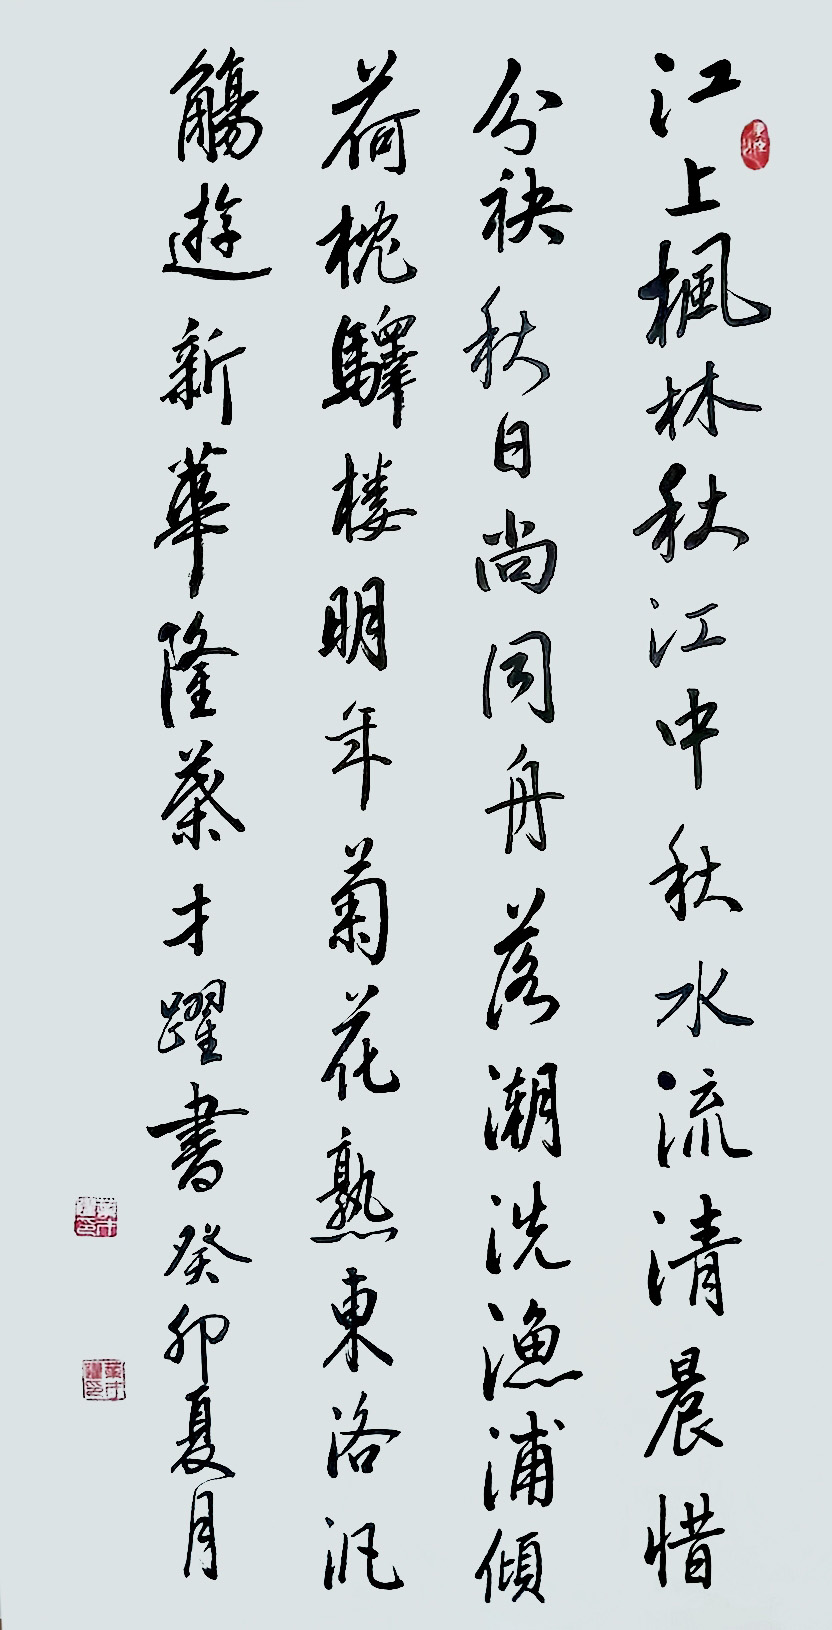 江上楓林秋江中秋水流清晨惜
分袂秋日尚同舟落潮洗漁浦傾
荷枕驛楼明年菊花熟東洛泛
觴遊新華隆葉才躍書癸卯夏月